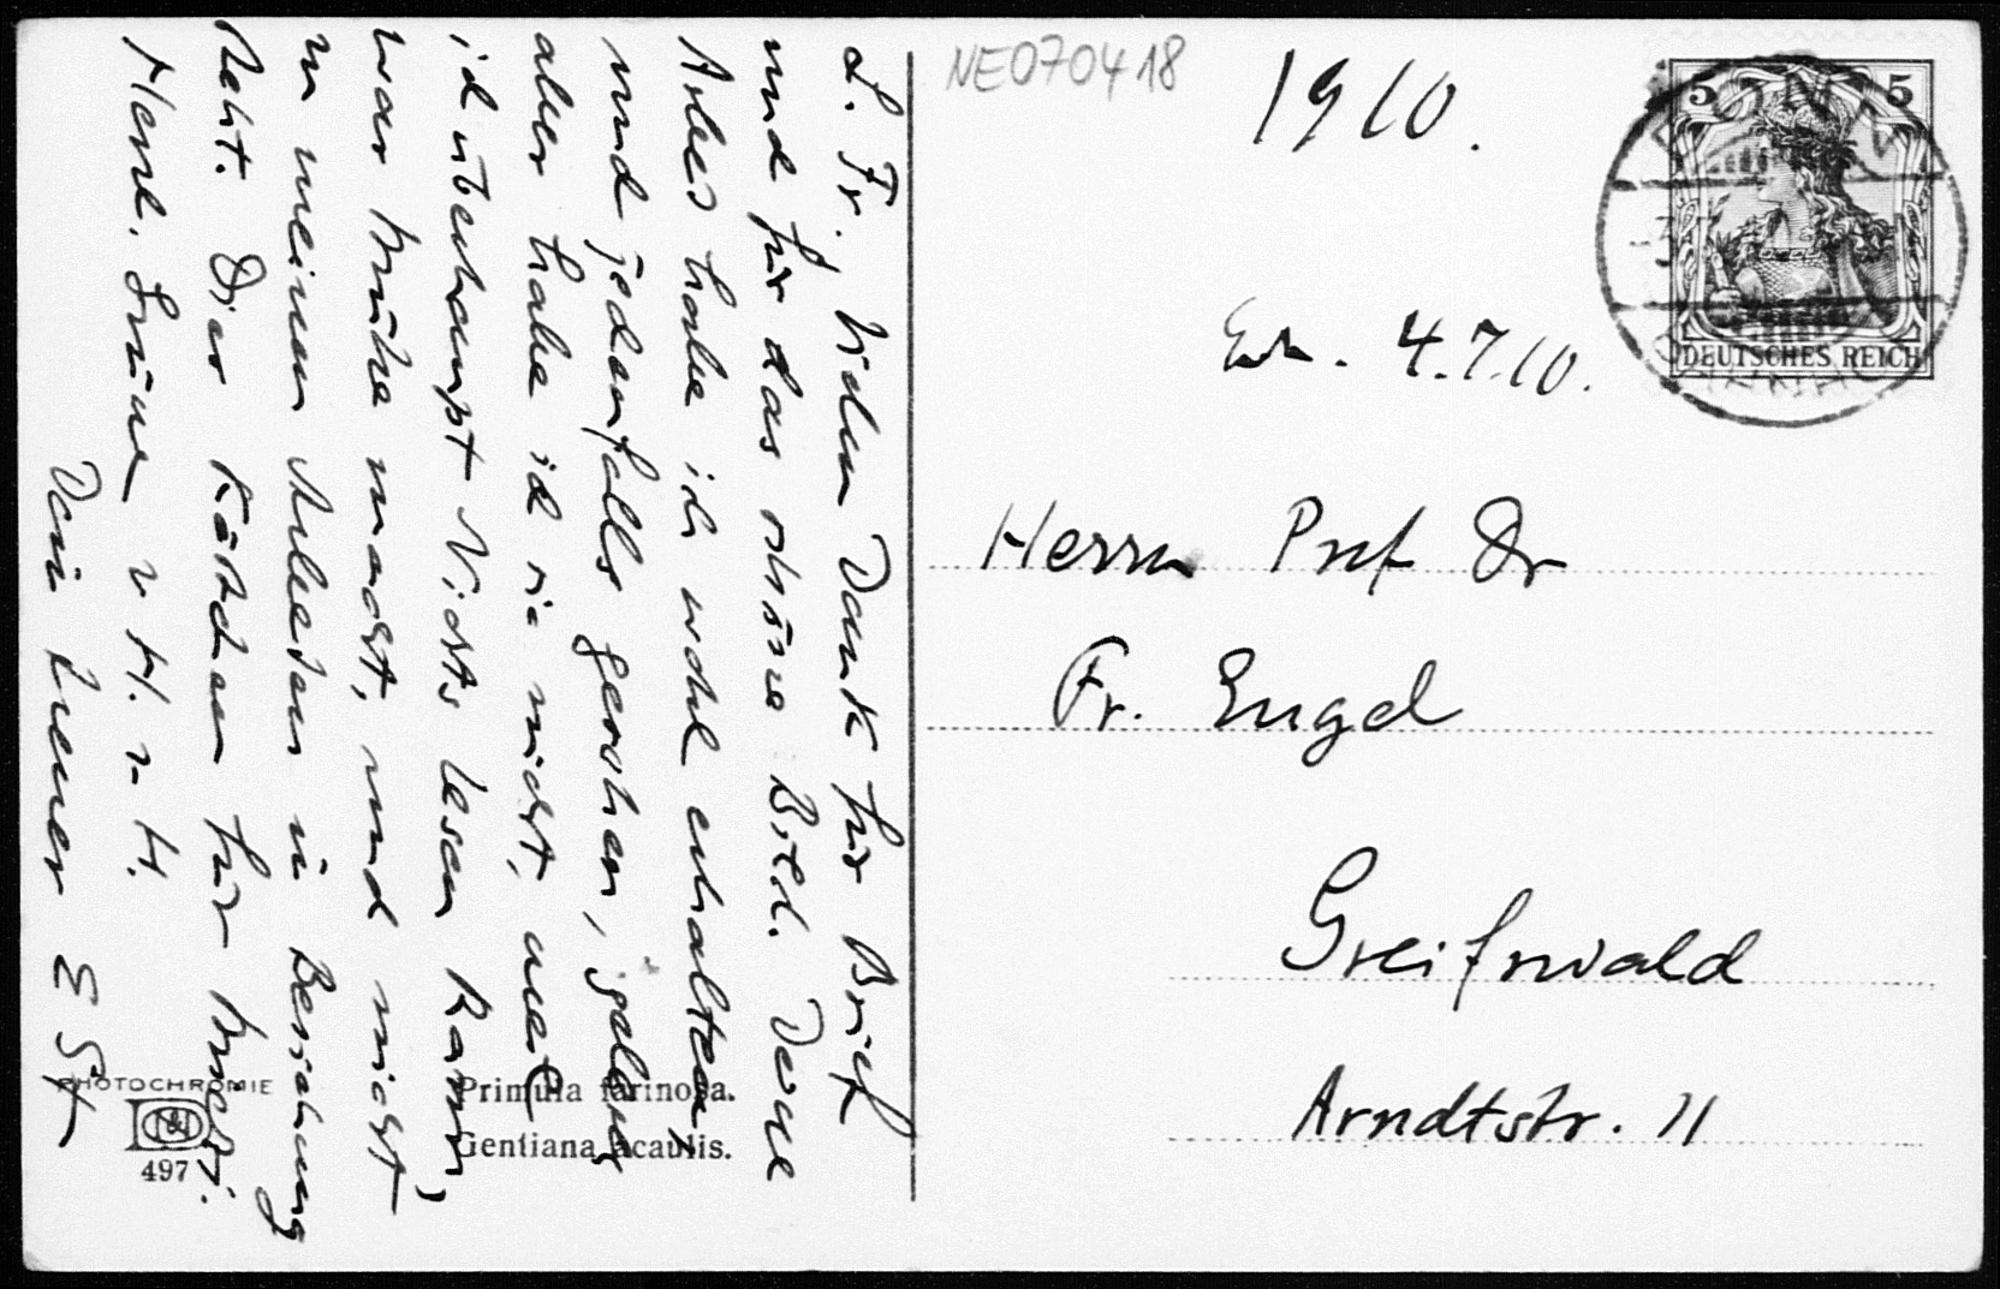 NE070418
1910.
Erh. 4.7.10.
5 5
DEUTSCHES REICH
BONN
Herrn Prof Dr
Fr. Engel
Greifswald
Arndtstr. 11
L. Fr., Vielen Dank für Brief
und für das schöne Bild. Deine
Arbeit habe ich wohl erhalten,
und jedenfalls gesehen,
aber habe ich sie nicht, weil
ich überhaupt Nichts lesen kann,
was Mühe macht, und nicht
zu meinen Arbeiten in Beziehung
steht. Dier Kästchen für
Herzl. Grüße v H. z H.
Dein treuer E St
PHOTOCHROMIE
N&C
497
Primula farinosa.
Gentiana acaulis.